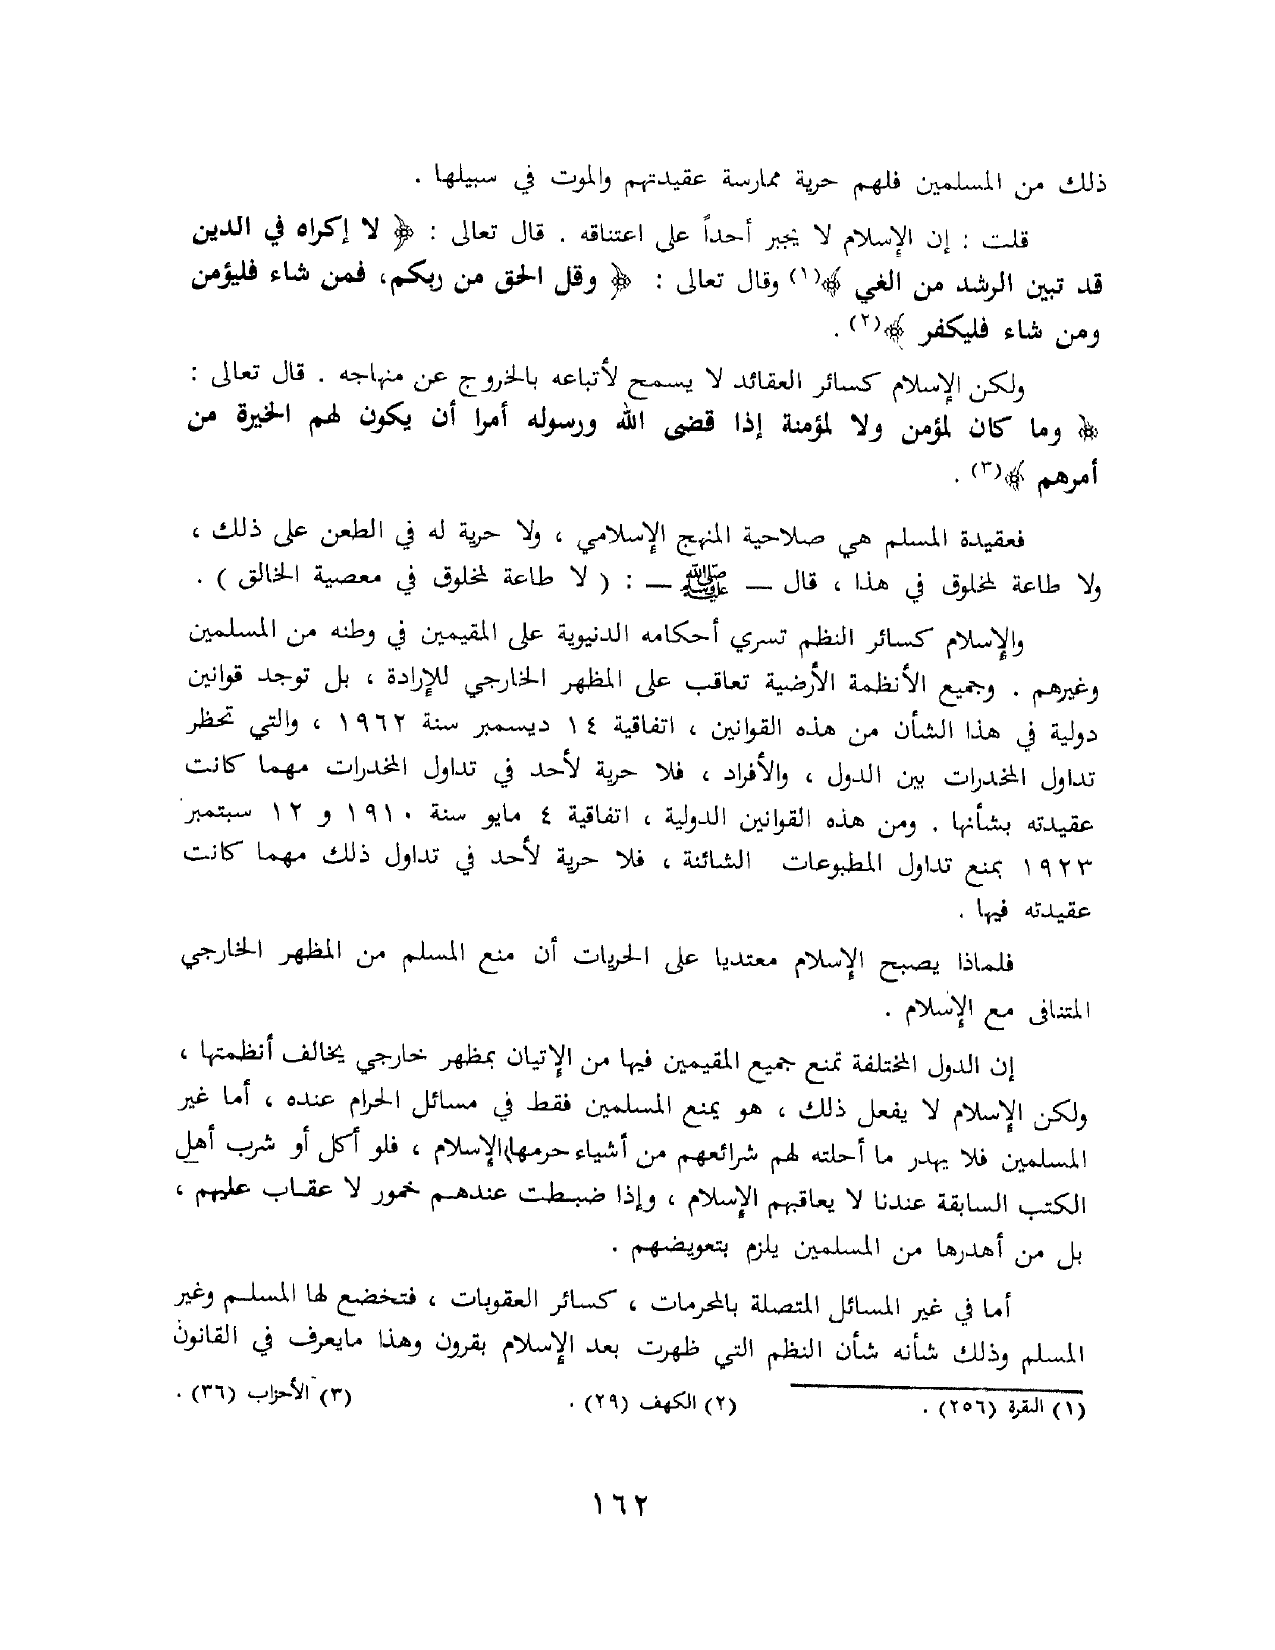 ذلك من المسلمين فلهم حرية ممارسة عقيدتهم والموت في سبيلها .
قلت : إن الإسلام لا يجبر أحداً على اعتناقه . قال تعالى : ﴿ لا إكراه في الدين
قد تبين الرشد من الغي ﴾(١) وقال تعالى : ﴿ وقل الحق من ربكم، فمن شاء فليؤمن
ومن شاء فليكفر ﴾(٢) .
ولكن الإسلام كسائر العقائد لا يسمح لأتباعه بالخروج عن منهاجه . قال تعالى :
﴿ وما كان لمؤمن ولا لمؤمنة إذا قضى الله ورسوله أمرا أن يكون لهم الخيرة من
أمرهم ﴾(٣) .
فعقيدة المسلم هي صلاحية المنهج الإسلامي ، ولا حرية له في الطعن على ذلك ،
ولا طاعة لمخلوق في هذا ، قال — ﷺ — : ( لا طاعة لمخلوق في معصية الخالق ) .
والإسلام كسائر النظم تسري أحكامه الدنيوية على المقيمين في وطنه من المسلمين
وغيرهم . وجميع الأنظمة الأرضية تعاقب على المظهر الخارجي للإرادة ، بل توجد قوانين
دولية في هذا الشأن من هذه القوانين ، اتفاقية ١٤ ديسمبر سنة ١٩٦٢ ، والتي تحظر
تداول المخدرات بين الدول ، والأفراد ، فلا حرية لأحد في تداول المخدرات مهما كانت
عقيدته بشأنها . ومن هذه القوانين الدولية ، اتفاقية ٤ مايو سنة ١٩١٠ و ١٢ سبتمبر
١٩٢٣ بمنع تداول المطبوعات الشائنة ، فلا حرية لأحد في تداول ذلك مهما كانت
عقيدته فيها .
فلماذا يصبح الإسلام معتديا على الحريات أن منع المسلم من المظهر الخارجي
المتنافى مع الإسلام .
إن الدول المختلفة تمنع جميع المقيمين فيها من الإتيان بمظهر خارجي يخالف أنظمتها ،
ولكن الإسلام لا يفعل ذلك ، هو يمنع المسلمين فقط في مسائل الحرام عنده ، أما غير
المسلمين فلا يهدر ما أحلته لهم شرائعهم من أشياء حرمها الإسلام ، فلو أكل أو شرب أهل
الكتب السابقة عندنا لا يعاقبهم الإسلام ، وإذا ضبطت عندهم خمور لا عقاب عليهم ،
بل من أهدرها من المسلمين يلزم بتعويضهم .
أما في غير المسائل المتصلة بالمحرمات ، كسائر العقوبات ، فتخضع لها المسلم وغير
المسلم وذلك شأنه شأن النظم التي ظهرت بعد الإسلام بقرون وهذا مايعرف في القانون
(١) البقرة (٢٥٦) . (٢) الكهف (٢٩) . (٣) الأحزاب (٣٦) .
١٦٢